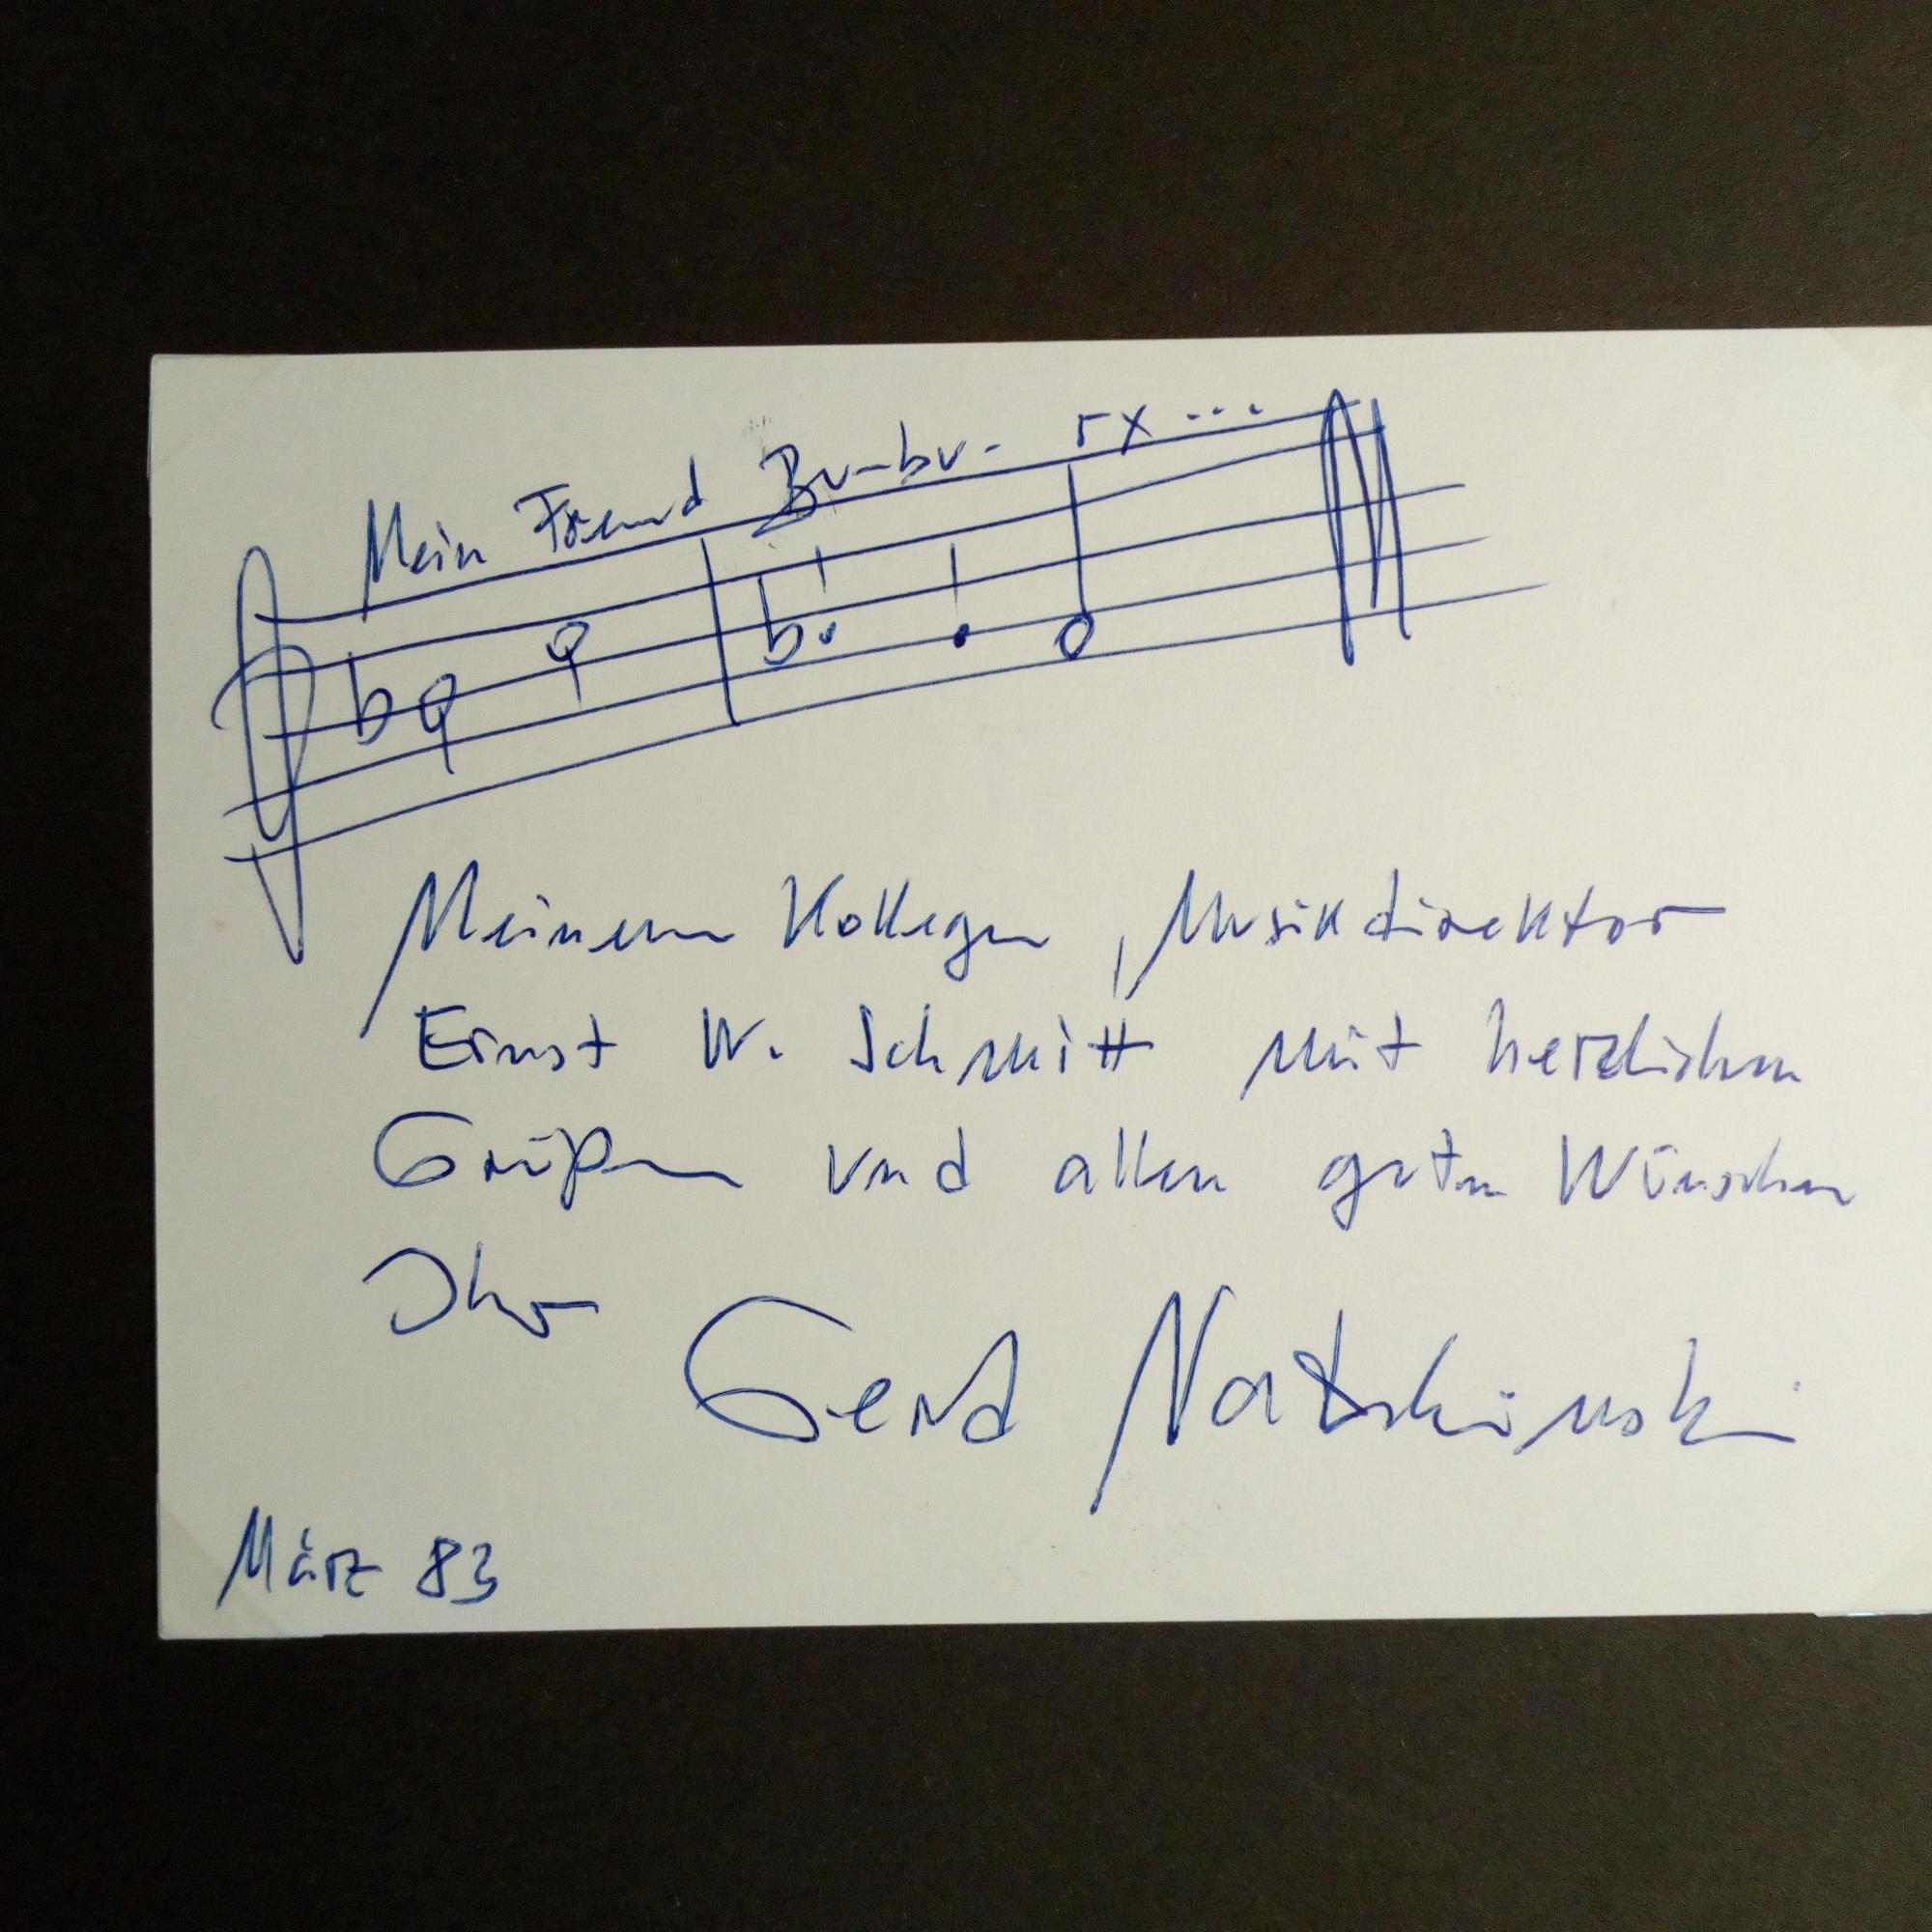 Mein Freund Bu-bu- ry ...
Meinem Kollegen, Musikdirektor
Ernst W. Schmitt mit herzlichen
Grüßen und allen guten Wünschen
Ihr
Gerd Natschinski
März 83